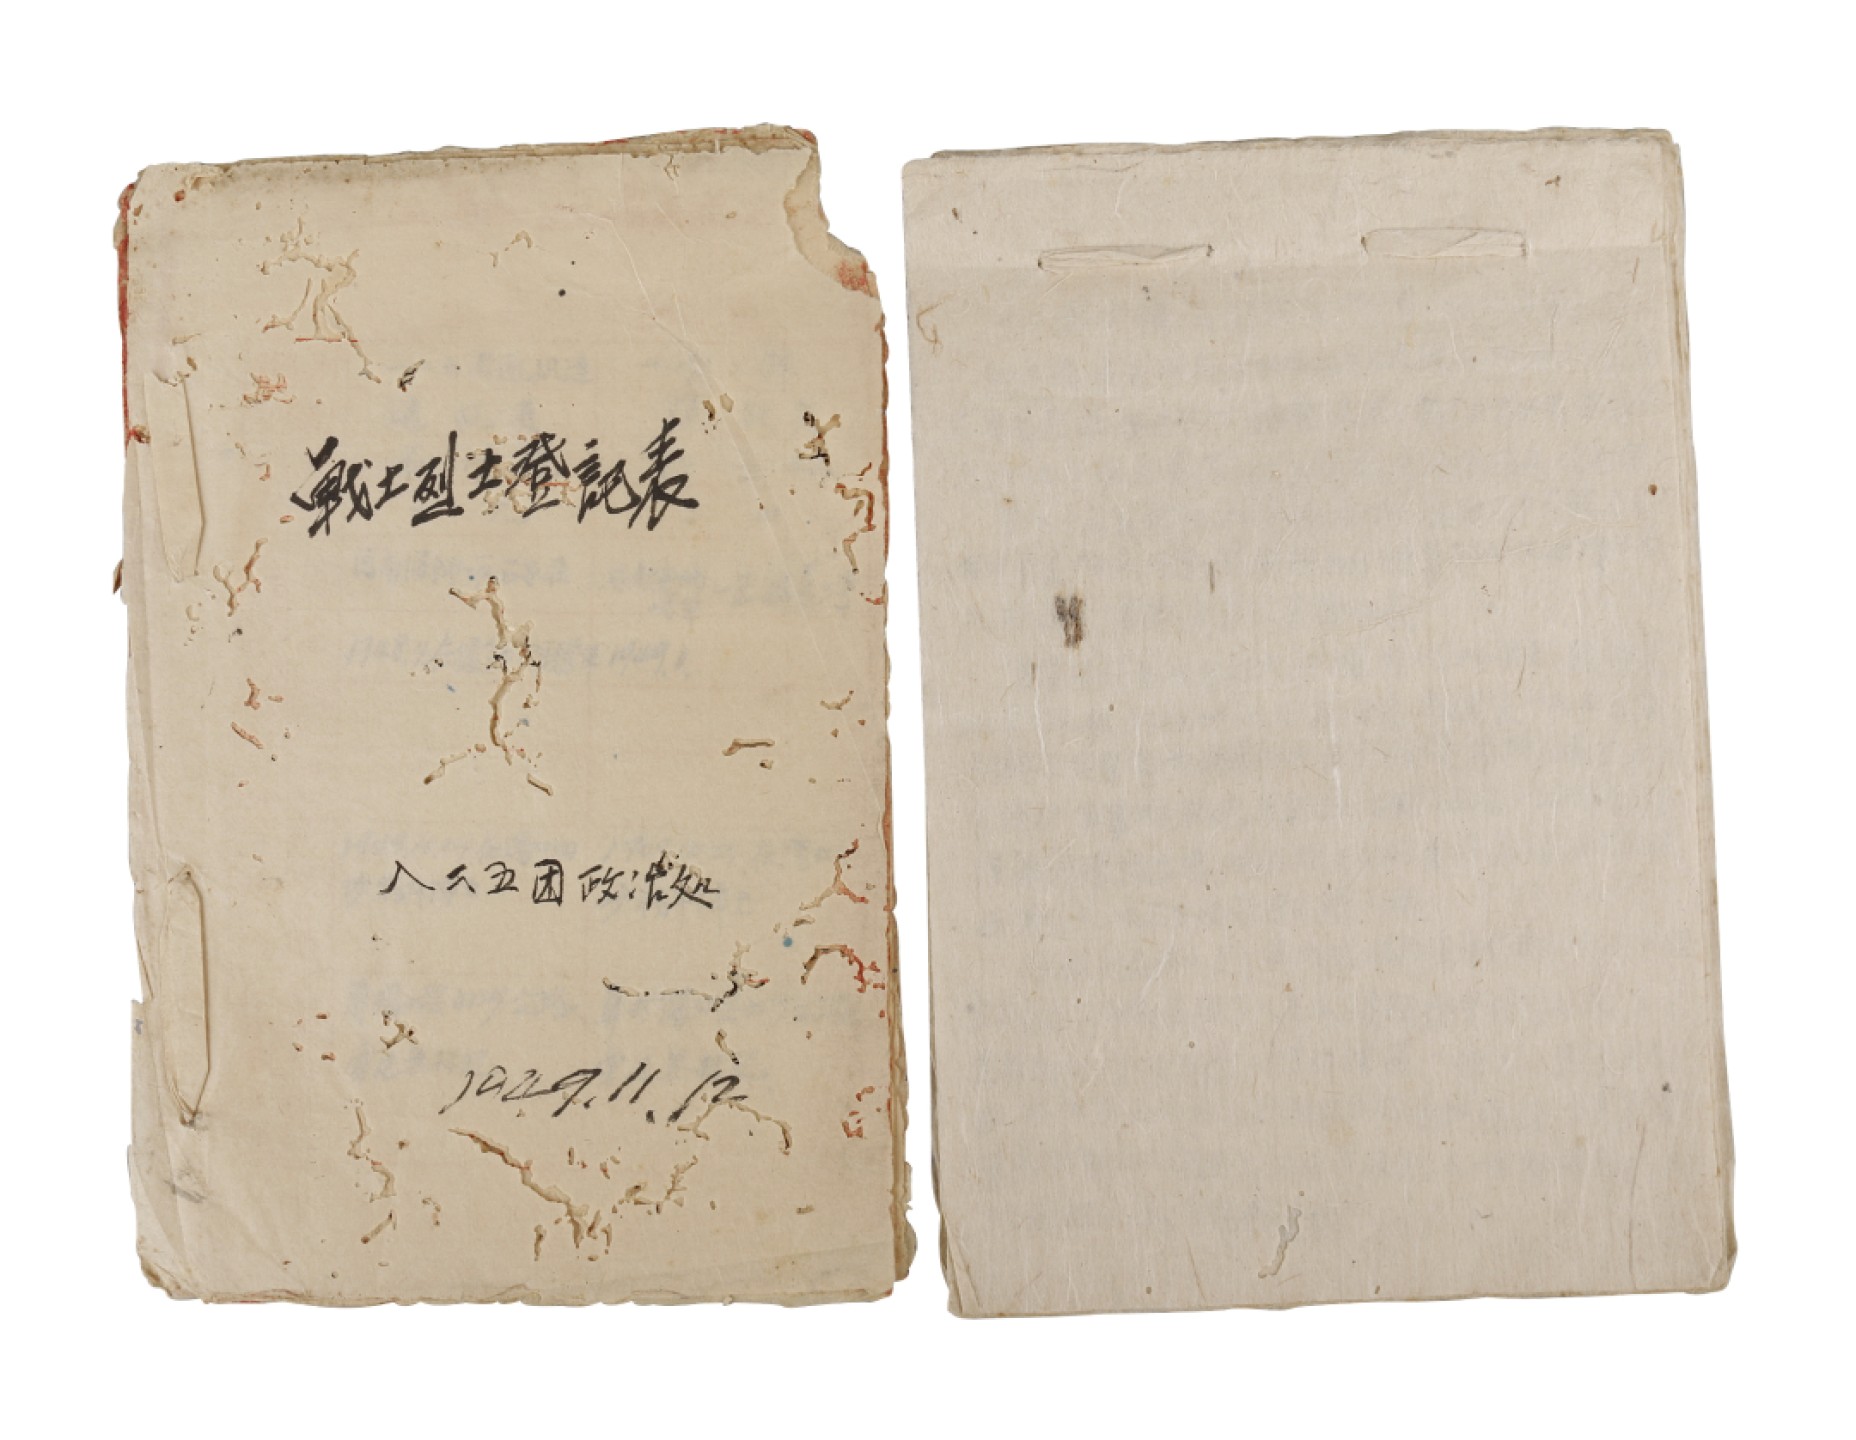 戰士烈士登記表
八六五团政治处
1949.11.12